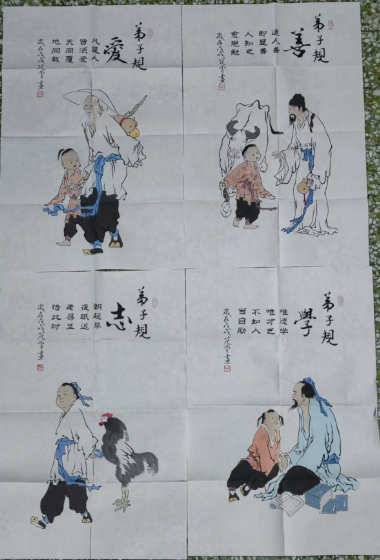 弟子规
愛
凡是人
皆須愛
天同覆
地同載
弟子规
善
道人善
即是善
人知之
愈思勉
弟子规
志
朝起早
夜眠遲
老易至
惜此時
弟子规
學
唯德學
唯才艺
不如人
當自勵